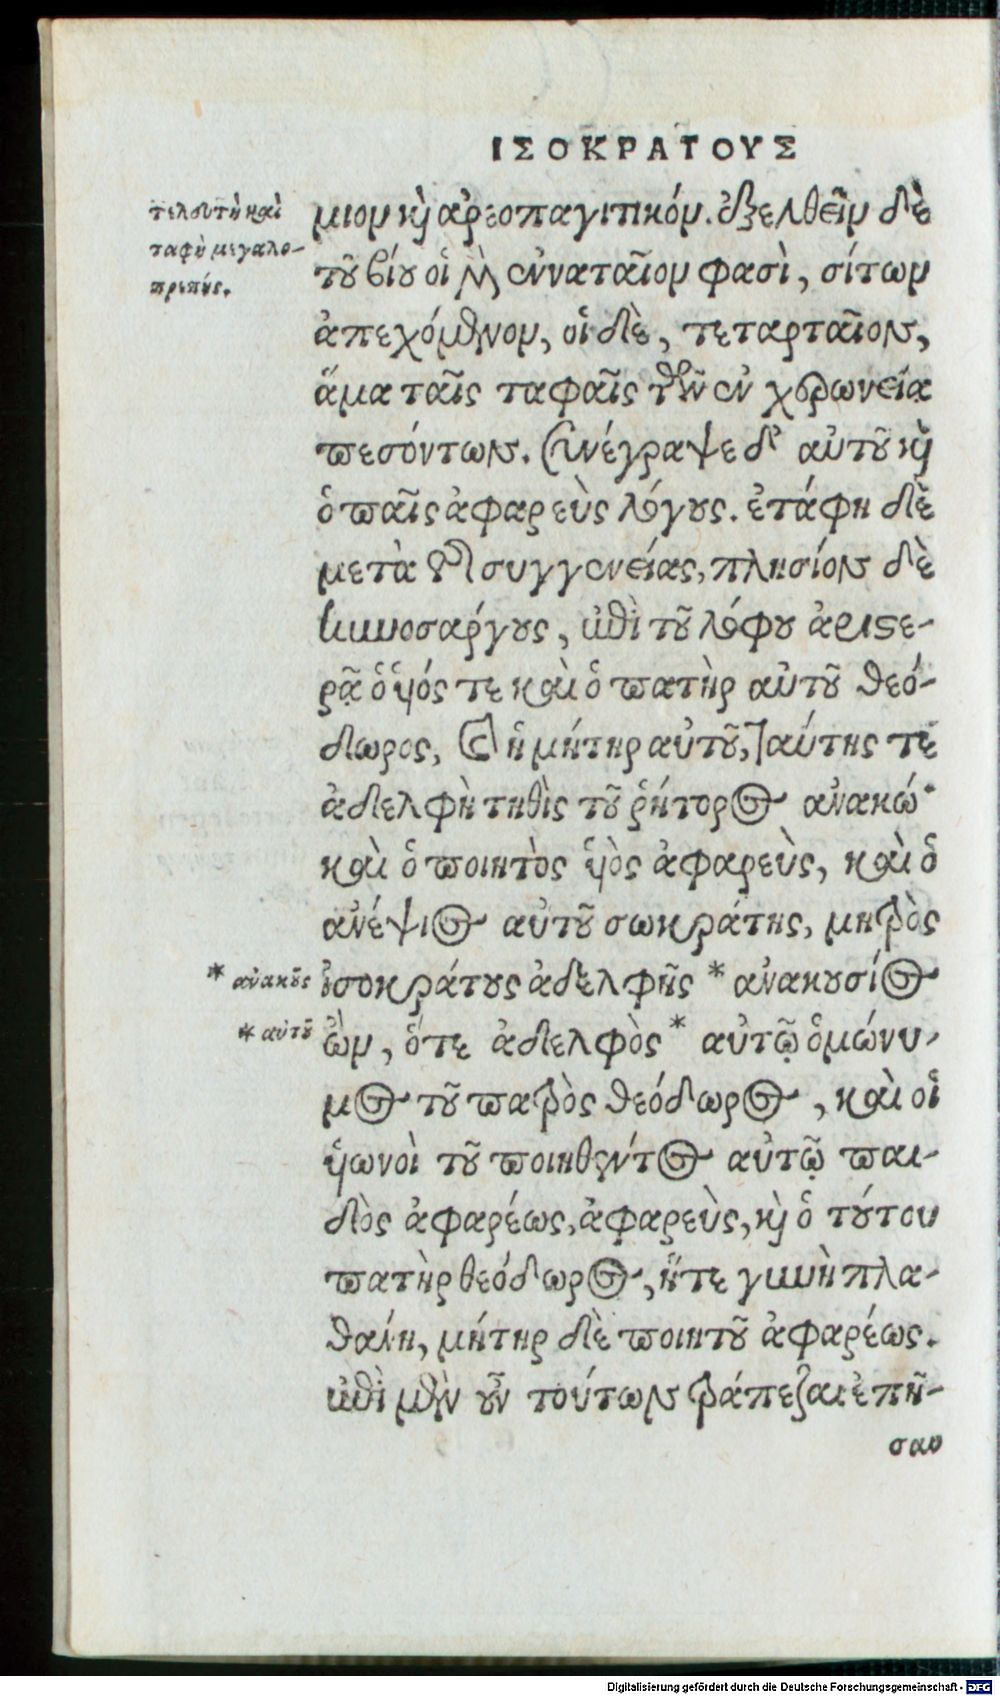 ΙΣΟΚΡΑΤΟΥΣ
τελευτὴ καὶ
ταφὴ μεγαλο-
πρεπής.
μιον καὶ ἀρεοπαγιτικόν. ἐξελθεῖν δὲ
τοῦ βίου οἱ μὲν ἐνναταῖον φασὶ, σίτων
ἀπεχόμενον, οἱ δὲ, τεταρταῖον,
ἅμα ταῖς ταφαῖς τῶν ἐν χερωνεία
πεσόντων. συνέγραψε δ' αὐτοῦ καὶ
ὁ παῖς ἀφαρεὺς λόγους. ἐτάφη δὲ
μετὰ τῆς συγγενείας, πλησίον δὲ
κυνοσάργους, ἐπὶ τοῦ λόφου ἀριστε-
ρᾷ ὁ ὑιός τε καὶ ὁ πατὴρ αὐτοῦ θεό-
δωρος, καὶ ἡ μήτηρ αὐτοῦ, ταύτης τε
ἀδελφὴ τηθὶς τοῦ ῥήτορος ἀνακώ
καὶ ὁ ποιητὸς ὑιὸς ἀφαρεὺς, καὶ ὁ
ἀνέψιος αὐτοῦ σωκράτης, μητρὸς
* ἀνακοῦς
ἰσοκράτους ἀδελφῆς * ἀνακουσίος
* αὐτοῦ
ὢν, ὅτε ἀδελφὸς * αὐτῷ ὁμώνυ-
μος τοῦ πατρὸς θεόδωρος, καὶ οἱ
ὑιωνοὶ τοῦ ποιηθέντος αὐτῷ παι-
δὸς ἀφαρέως, ἀφαρεὺς, καὶ ὁ τούτου
πατὴρ θεόδωρος, ἥτε γυνὴ πλα-
θάνη, μήτηρ δὲ ποιητοῦ ἀφαρέως.
ἐπὶ μὲν οὖν τούτων τράπεζαι ἐπῆ-
σαν
Digitalisierung gefördert durch die Deutsche Forschungsgemeinschaft - DFG